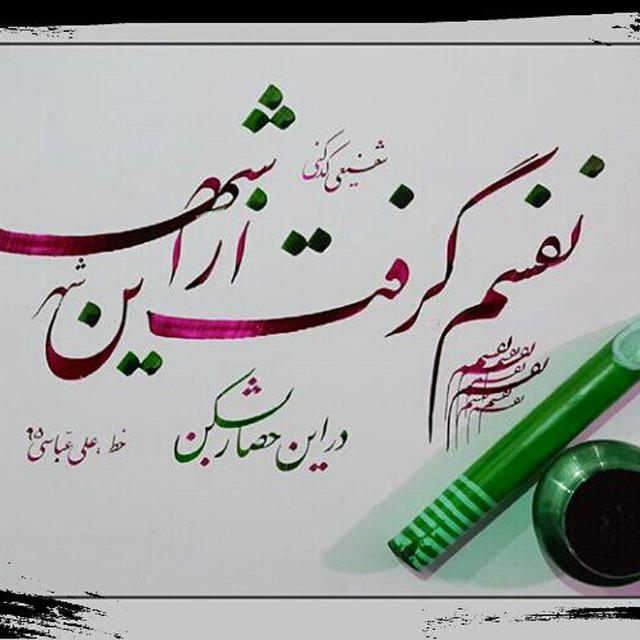 شفیعی کدکنی
نفسم گرفت از این شهر
شهر
در این حصار بشکن
خط ، علی عباسی ۹۵